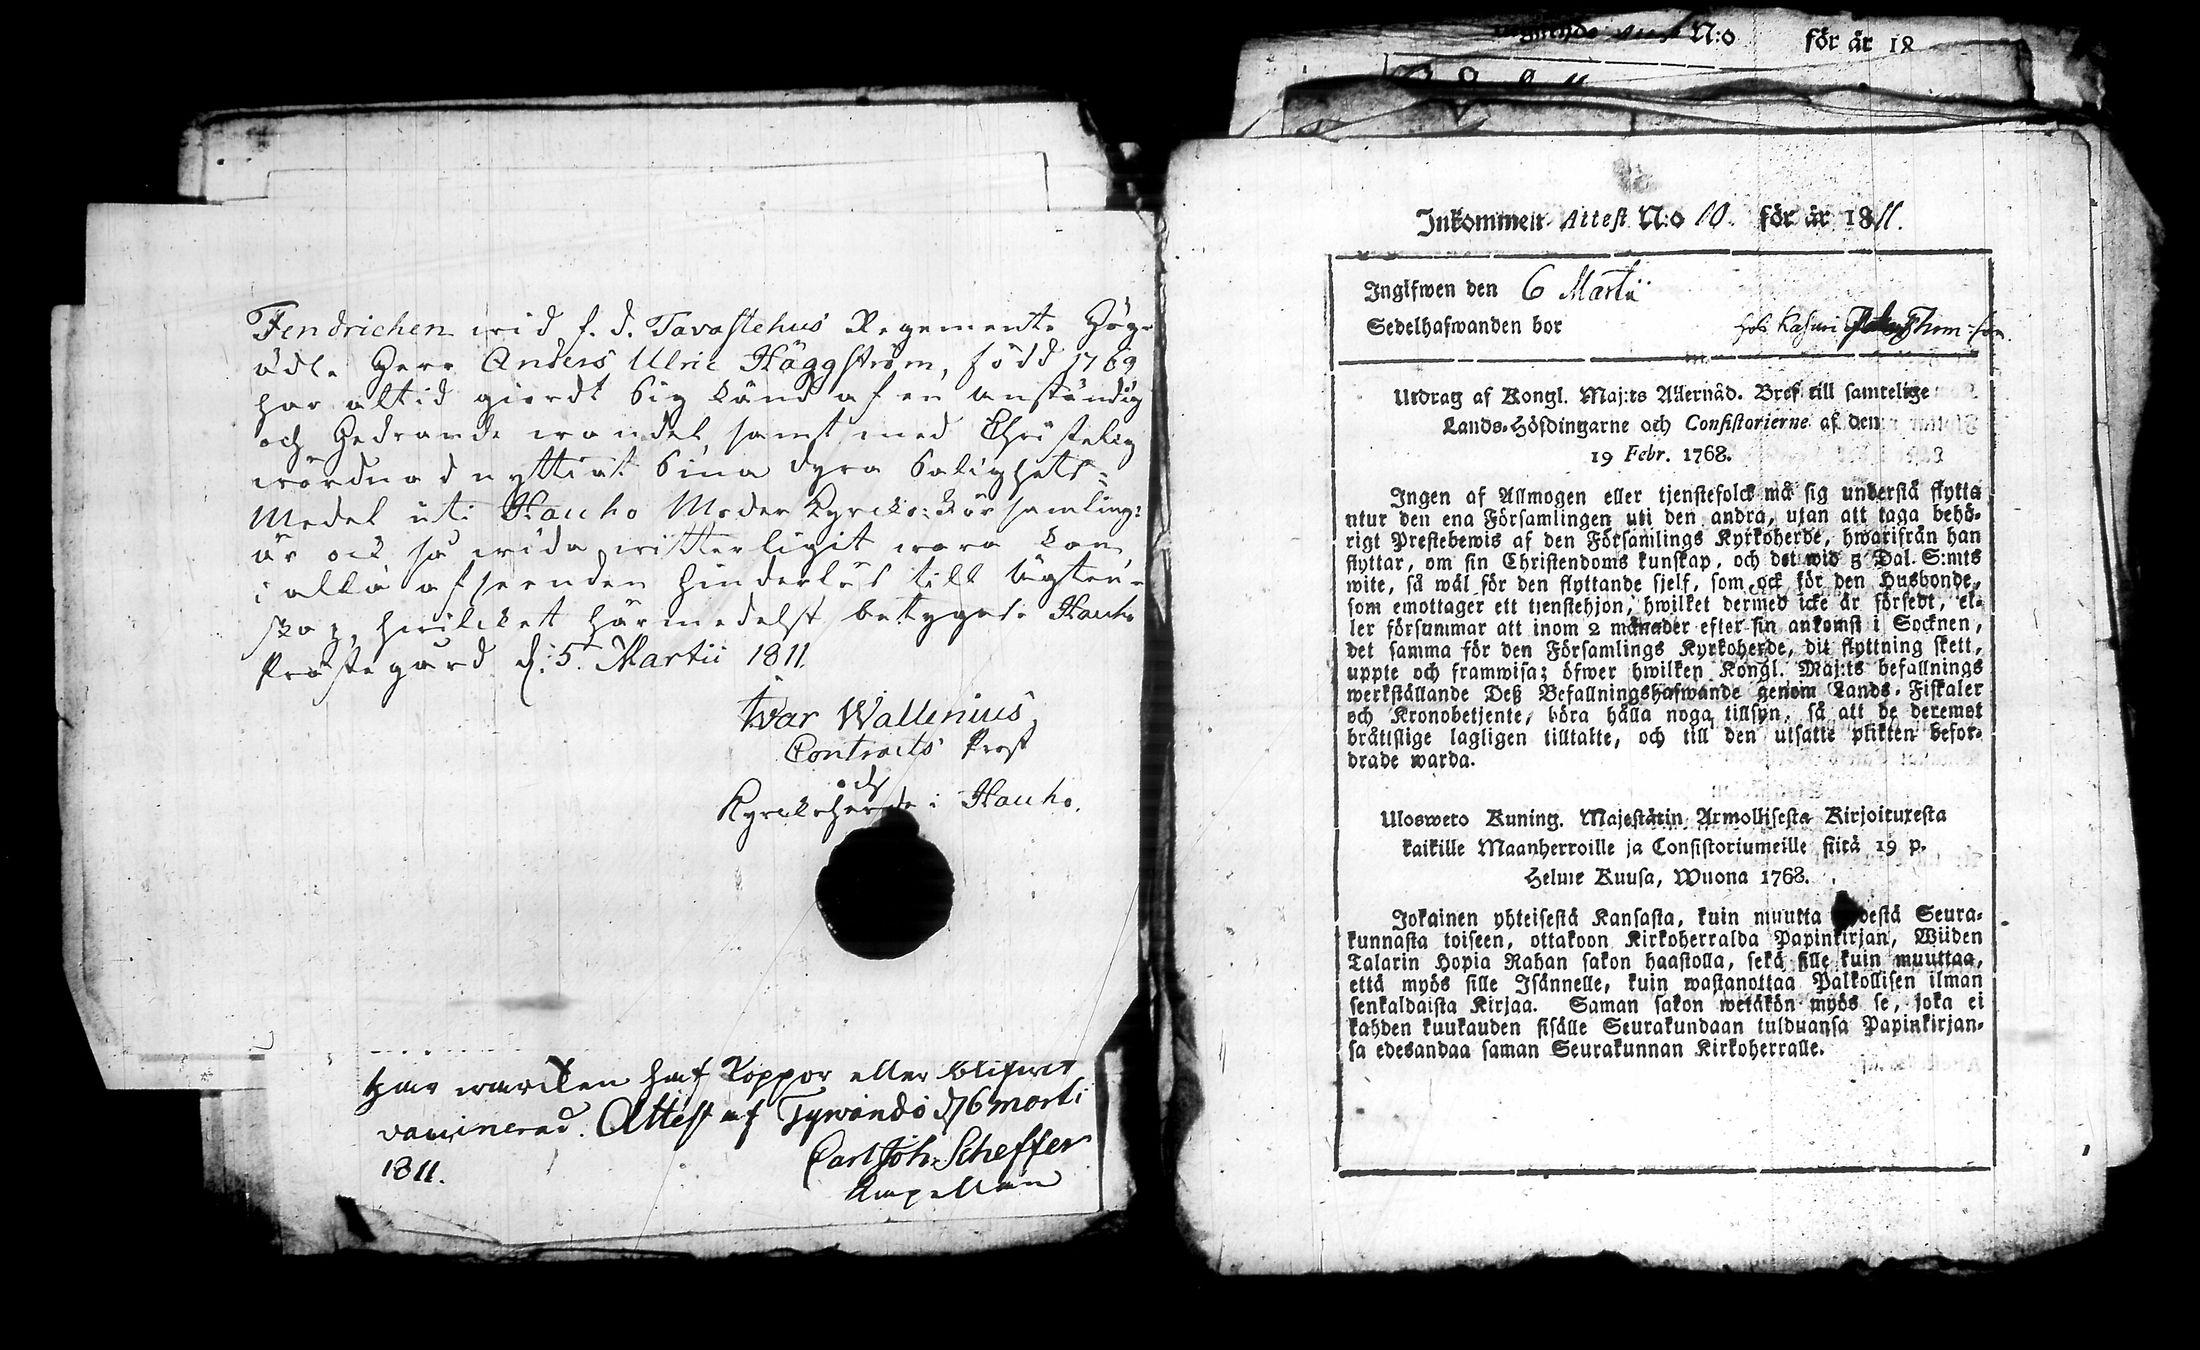 Fendrichen wid f. d. Tavastehus Regemente Hög-
ädle Herr Anders Ulric Häggström, född 1769
har altid giordt sig känd af en anständig
och Hedrande wandel, samt med Christelig
wördnad nyttiat sina dyra Salighets-
Medel uti Hauho Moder Kyrcko: Församling:
är ock så wida witterligit wara kan
i alla afseenden hinderlös till Ägten-
skap, hwilcket härmedelst betygas. Hauho
Prästegård d: 5. Martii 1811.
Iwar Wallenius,
Contracts Prost
och
Kyrckoherde i Hauho.
Har warcken haft Koppor eller blifwit
vaccinerad. Attest af Tywändö d. 6 marti
1811.
Carl Joh. Scheffer
Capellan
N:o för år 18
Inkommen Attest N:o 10. för år 1811.
Ingifwen den 6 Martii
Sedelhafwanden bor hos
Utdrag af Kongl. Maj:ts Allernåd. Bref till samtelige
Lands-Höfdingarne och Consistorierne af den
19 Febr. 1768.
Ingen af Allmogen eller tjenstefolck må sig understå flytta
utur den ena Församlingen uti den andra, utan att taga behö-
rigt Prestebewis af den Församlings Kyrkoherde, hwarifrån han
flyttar, om sin Christendoms kunskap, och det wid 5 Dal. S:mts
wite, så wäl för den flyttande sjelf, som ock för den Husbonde,
som emottager ett tienstehjon, hwilket dermed icke är försedt, el-
ler försummar att inom 2 månader efter sin ankomst i Socknen,
det samma för den Församlings Kyrkoherde, dit flyttning skett,
uppte och framwisa; öfwer hwilken Kongl. Maj:ts befallnings
werkställande Deß Befallningshafwande genom Lands-Fiskaler
och Kronobetjente, böra hålla noga tillsyn, så att de deremot
bråttslige lagligen tilltalte, och till den utsatte plikten befor-
drade warda.
Uloswero Kuning. Majestätin Armollisesta Kirjoituxesta
kaikille Maanherroille ja Consistoriumeille siitä 19 p.
Helme Kuusa, Wuona 1768.
Jokainen yhteisestä Kansasta, kuin muutta destä Seura-
kunnasta toiseen, ottakoon Kirkoherralda Papinkirjan, Wiiden
Talarin Hopia Rahan sakon haastolla, sekä sille kuin muuttaa,
että myös sille Isännelle, kuin wastanottaa Palkollisen ilman
senkaldaista Kirjaa. Saman sakon wetäkön myös se, joka ei
kahden kuukauden sisälle Seurakundaan tulduansa Papinkirjan-
sa edesandaa saman Seurakunnan Kirkoherralle.